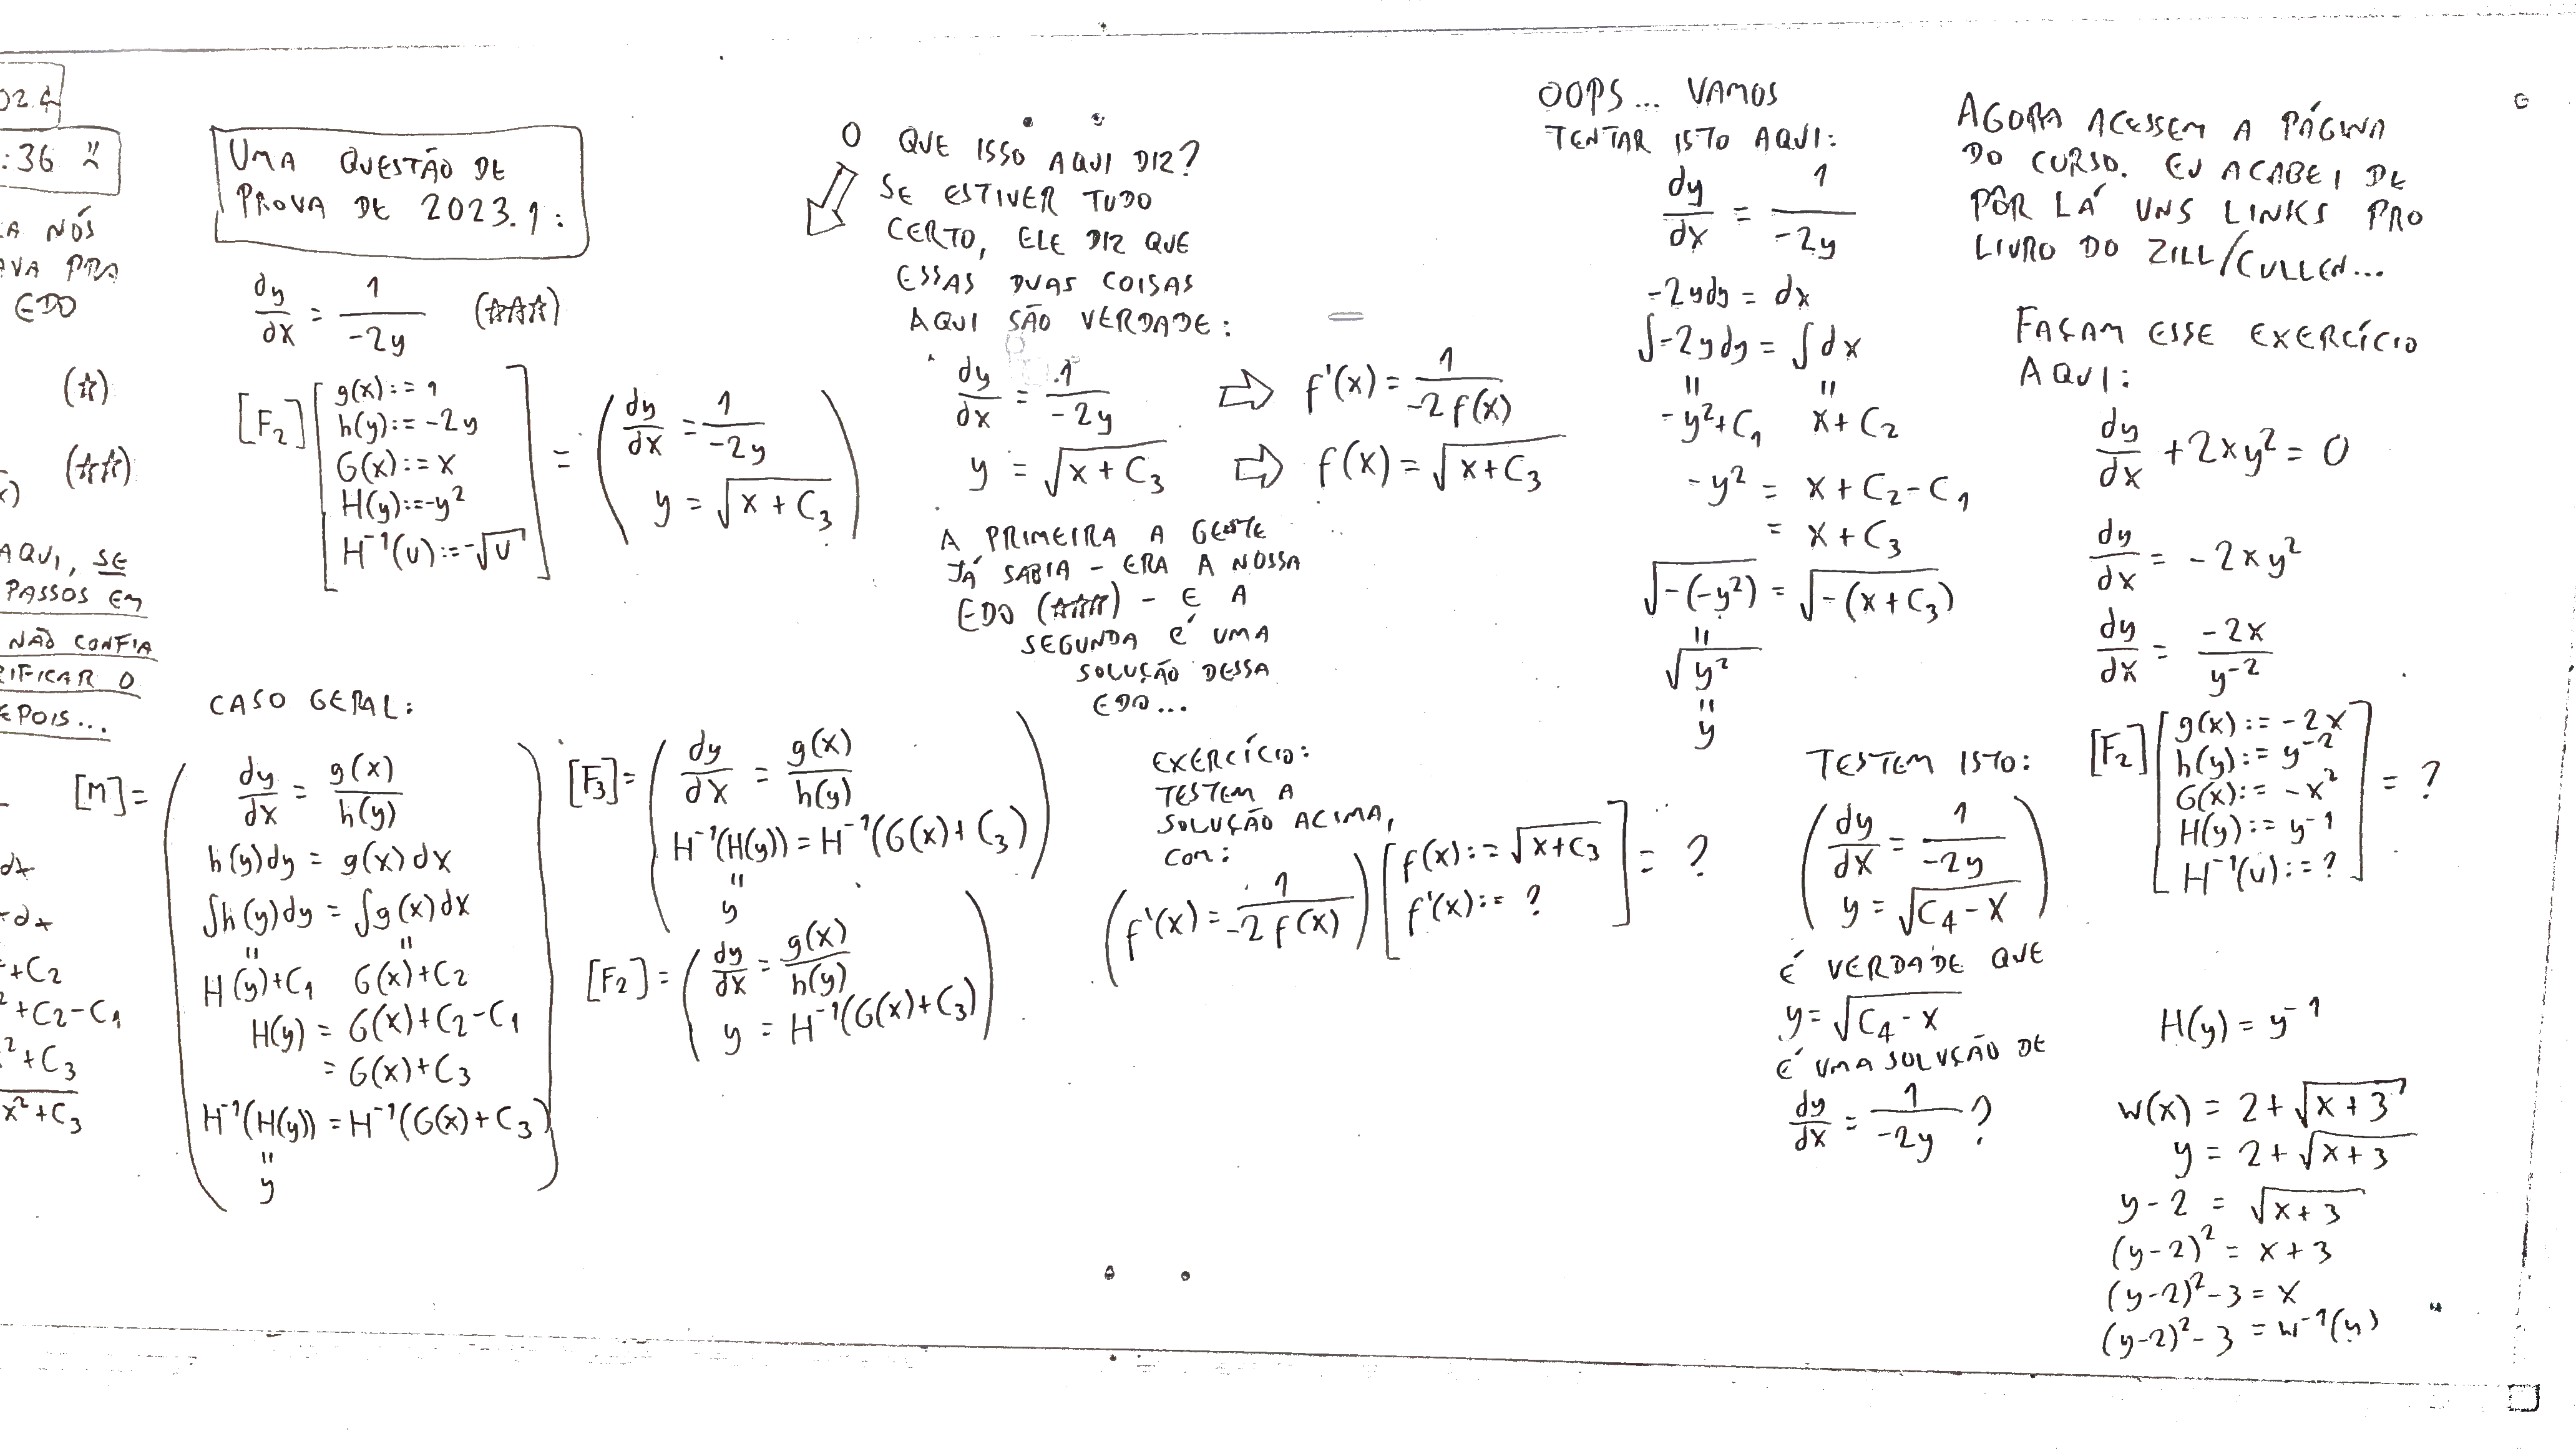 02.4
:36
A NÓS
AVA PRA
EDO
(☆)
(☆☆)
AQUI, SE
PASSOS EM
NÃO CONFIA
RIFICAR O
EPOIS...
dx
dx
+C₂
² +C₂-C₁
² +C₃
x²+C₃
UMA QUESTÃO DE
PROVA DE 2023.1:
dy/dx = 1/(-2y) (☆☆☆)
[F₂] [g(x):=1
h(y):=-2y
G(x):=x
H(y):=-y²
H⁻¹(u):=-√u] = (dy/dx = 1/(-2y)
y = √(x+C₃))
CASO GERAL:
[M] = (dy/dx = g(x)/h(y)
h(y)dy = g(x)dx
∫h(y)dy = ∫g(x)dx
" "
H(y)+C₁ G(x)+C₂
H(y) = G(x)+C₂-C₁
= G(x)+C₃
H⁻¹(H(y)) = H⁻¹(G(x)+C₃)
"
y)
[F₃] = (dy/dx = g(x)/h(y)
H⁻¹(H(y)) = H⁻¹(G(x)+C₃)
"
y)
[F₂] = (dy/dx = g(x)/h(y)
y = H⁻¹(G(x)+C₃))
O QUE ISSO AQUI DIZ?
SE ESTIVER TUDO
CERTO, ELE DIZ QUE
ESSAS DUAS COISAS
AQUI SÃO VERDADE:
dy/dx = 1/(-2y) ⇨ f'(x) = 1/(-2f(x))
y = √(x+C₃) ⇨ f(x) = √(x+C₃)
A PRIMEIRA A GENTE
JÁ SABIA - ERA A NOSSA
EDO (☆☆☆) - E A
SEGUNDA É UMA
SOLUÇÃO DESSA
EDO...
EXERCÍCIO:
TESTEM A
SOLUÇÃO ACIMA,
COM:
(f'(x) = 1/(-2f(x))) [f(x):=√(x+C₃)
f'(x):=?] = ?
OOPS... VAMOS
TENTAR ISTO AQUI:
dy/dx = 1/(-2y)
-2ydy = dx
∫-2ydy = ∫dx
" "
-y²+C₁ x+C₂
-y² = x+C₂-C₁
= x+C₃
√(-(-y²)) = √(-(x+C₃))
"
√(y²)
"
y
TESTEM ISTO:
(dy/dx = 1/(-2y)
y = √(C₄-x))
É VERDADE QUE
y = √(C₄-x)
É UMA SOLUÇÃO DE
dy/dx = 1/(-2y) ?
AGORA ACESSEM A PÁGINA
DO CURSO. EU ACABEI DE
PÔR LÁ UNS LINKS PRO
LIVRO DO ZILL/CULLEN...
FAÇAM ESSE EXERCÍCIO
AQUI:
dy/dx + 2xy² = 0
dy/dx = -2xy²
dy/dx = -2x/y⁻²
[F₂] [g(x):=-2x
h(y):=y⁻²
G(x):=-x²
H(y):=y⁻¹
H⁻¹(u):=?] = ?
H(y) = y⁻¹
w(x) = 2+√(x+3)
y = 2+√(x+3)
y-2 = √(x+3)
(y-2)² = x+3
(y-2)²-3 = x
(y-2)²-3 = w⁻¹(y)